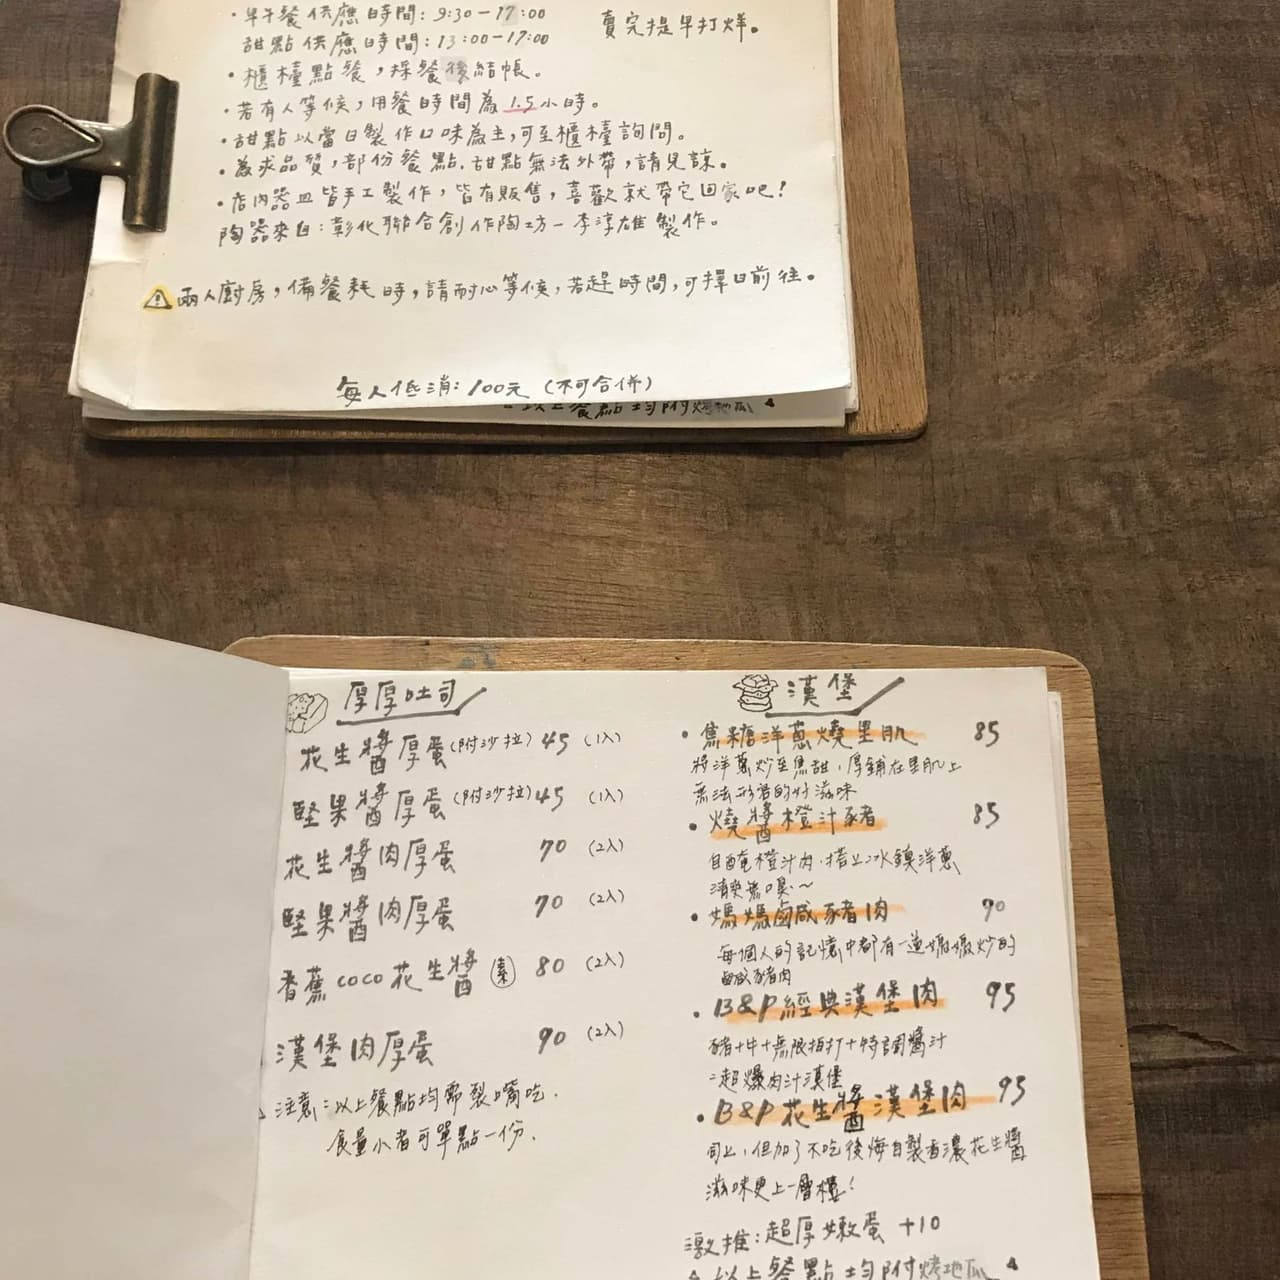 ·早午餐供應時間:9:30-17:00
賣完提早打烊。
甜點供應時間:13:00-17:00
·櫃檯點餐,採餐後結帳。
·若有人等候,用餐時間為1.5小時。
·甜點以當日製作口味為主,可至櫃檯詢問。
·為求品質,部份餐點.甜點無法外帶,請見諒。
·店內器皿皆手工製作,皆有販售,喜歡就帶它回家吧!
陶器來自:彰化聯合創作陶坊-李淳雄製作。
⚠兩人廚房,備餐耗時,請耐心等候,若趕時間,可擇日前往。
每人低消:100元(不可合併)
以上餐點均附烤地瓜
厚厚吐司
花生醬厚蛋(附沙拉)45(1入)
堅果醬厚蛋(附沙拉)45(1入)
花生醬肉厚蛋 70(2入)
堅果醬肉厚蛋 70(2入)
香蕉coco花生醬(素)80(2入)
漢堡肉厚蛋 90(2入)
注意:以上餐點均需裂嘴吃.
食量小者可單點一份.
漢堡
·焦糖洋蔥燒里肌 85
將洋蔥炒至焦甜,厚鋪在里肌上
無法形容的好滋味
·燒醬橙汁豬 85
自醃橙汁肉.搭上冰鎮洋蔥
清爽無口臭~
·媽媽鹹豬肉 90
每個人的記憶中都有一道媽媽炒的
鹹豬肉
·B&P經典漢堡肉 95
豬+牛+無限拍打+特調醬汁
=超爆肉汁漢堡
·B&P花生醬漢堡肉 95
同上,但加了不吃後悔自製香濃花生醬
滋味更上一層樓!
激推:超厚嫩蛋 +10
以上餐點均附烤地瓜